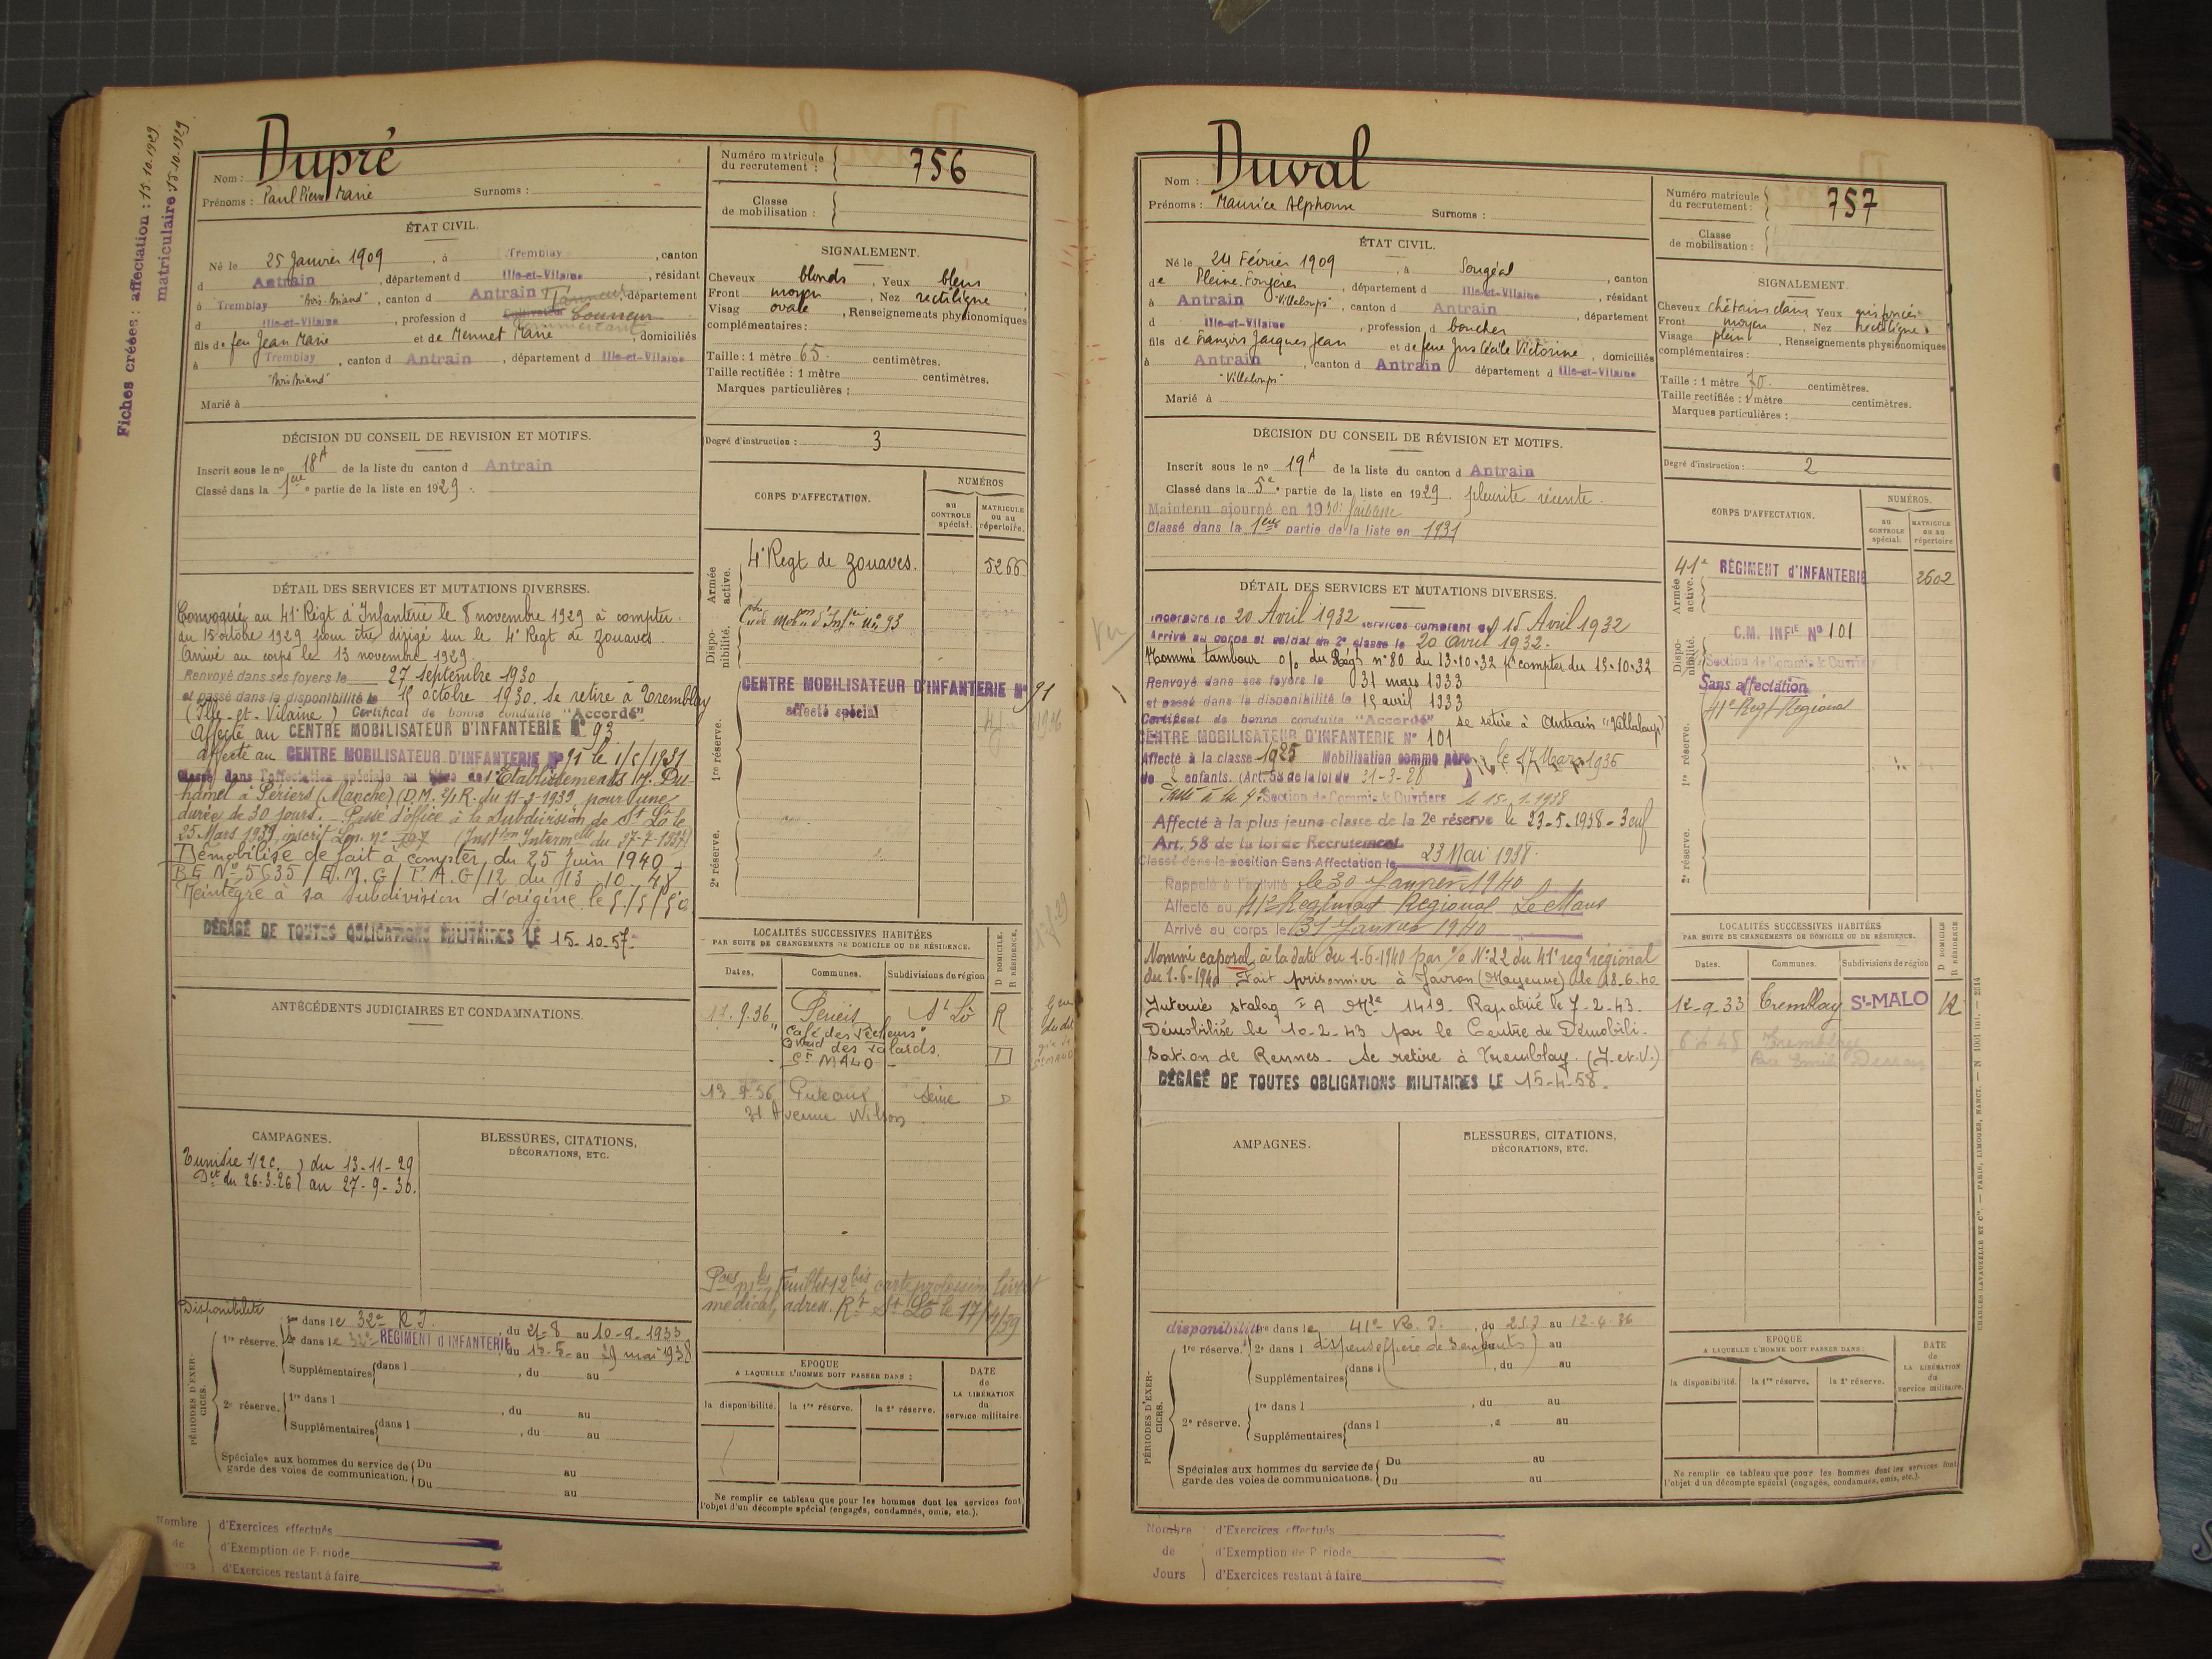 Fiches créées : affectation : 15.10.1929
matriculaire : 15.10.1929
Nom : Dupré
Prénoms : Paul Pierre Marie Surnoms :
ÉTAT CIVIL.
Né le 25 Janvier 1909, à Tremblay, canton
d Antrain, département d Ille-et-Vilaine, résidant
à Tremblay "Bois-Briand", canton d Antrain, département
d Ille-et-Vilaine, profession d Cultivateur Couvreur
commerçant
fils de feu Jean Marie et de Mennet Marie, domiciliés
à Tremblay, canton d Antrain, département d Ille-et-Vilaine
"Bois Briand"
Marié à
DÉCISION DU CONSEIL DE REVISION ET MOTIFS.
Inscrit sous le no 18A de la liste du canton d Antrain
Classé dans la 1ère partie de la liste en 1929.
DÉTAIL DES SERVICES ET MUTATIONS DIVERSES.
Convoqué au 41e Régt d'Infanterie le 8 novembre 1929 à compter
du 15 octobre 1929 pour être dirigé sur le 4e Regt de zouaves.
Arrivé au corps le 13 novembre 1929.
Renvoyé dans ses foyers le 27 septembre 1930
et passé dans la disponibilité le 15 octobre 1930. Se retire à Tremblay
(Ille-et-Vilaine) Certificat de bonne conduite "Accordé"
Affecté au CENTRE MOBILISATEUR D'INFANTERIE N° 93
affecté au CENTRE MOBILISATEUR D'INFANTERIE N° 91 le
Classé dans l'affectation spéciale au titre des Etablissements Du-
hamel à Périers (Manche) (D.M. 2/R. du 11-3-1939 pour une
durée de 30 jours. - Passé d'office à la Subdivision de St Lô le
25 Mars 1939, inscrit
Démobilisé de fait à compter du 25 Juin 1940
B E N° 5635/E.M.G/T.A.G/12 du 13.10.41
Réintégré à sa subdivision d'origine le
DÉGAGÉ DE TOUTES OBLIGATIONS MILITAIRES LE 15-10-57.
ANTÉCÉDENTS JUDICIAIRES ET CONDAMNATIONS.
CAMPAGNES.
Tunisie 1/2 c. ) du 13-11-29
Dct du 26-3-26 ) au 27-9-30.
BLESSURES, CITATIONS,
DÉCORATIONS, ETC.
Disponibilité
PÉRIODES D'EXERCICES.
1re réserve. 1re dans le 32e R.I., du 21-8 au 10-9-1933
2e dans le 32e RÉGIMENT d'INFANTERIE, du 15-5- au 29 mai 1938
Supplémentaires dans l , du au
2e réserve. 1re dans l , du au
Supplémentaires dans l , du au
Spéciales aux hommes du service de garde des voies de communication. Du au
Du au
Nombre de Jours
d'Exercices effectués
d'Exemption de Période
d'Exercices restant à faire
Numéro matricule
du recrutement : 756
Classe
de mobilisation :
SIGNALEMENT.
Cheveux blonds, Yeux bleus
Front moyen, Nez rectiligne
Visag ovale, Renseignements physionomiques
complémentaires :
Taille : 1 mètre 65 centimètres.
Taille rectifiée : 1 mètre centimètres.
Marques particulières :
Degré d'instruction : 3
CORPS D'AFFECTATION.
NUMÉROS
au CONTROLE spécial.
MATRICULE ou au répertoire.
Armée active.
4e Regt de zouaves. 5266
Disponibilité.
Ctre de Mobon d'Infie N° 93
CENTRE MOBILISATEUR D'INFANTERIE N° 91
affecté spécial
1re réserve.
2e réserve.
LOCALITÉS SUCCESSIVES HABITÉES
PAR SUITE DE CHANGEMENTS DE DOMICILE OU DE RÉSIDENCE.
D DOMICILE. R RÉSIDENCE.
Dates. Communes. Subdivisions de région
11.9.36 St Lô R
"Café des Pêcheurs"
Quai des Talards.
St MALO - D
13 9 56 Puteaux Seine D
31 Avenue Wilson
médical, adress. Rt St Lô le 17/4/39
EPOQUE
A LAQUELLE L'HOMME DOIT PASSER DANS :
la disponibilité. la 1re réserve. la 2e réserve.
DATE de LA LIBÉRATION du service militaire.
Ne remplir ce tableau que pour les hommes dont les services font
l'objet d'un décompte spécial (engagés, condamnés, omis, etc.).
Nom : Duval
Prénoms : Maurice Alphonse Surnoms :
ÉTAT CIVIL.
Né le 24 Février 1909, à Sougéal, canton
de Pleine-Fougères, département d Ille-et-Vilaine, résidant
à Antrain "Villeloups", canton d Antrain, département
d Ille-et-Vilaine, profession d boucher
fils de François Jacques Jean et de feue Jus Cécile Victorine, domiciliés
à Antrain, canton d Antrain département d Ille-et-Vilaine
"Villeloups"
Marié à
DÉCISION DU CONSEIL DE RÉVISION ET MOTIFS.
Inscrit sous le no 19A de la liste du canton d Antrain
Classé dans la 5e partie de la liste en 1929. pleurite récente.
Maintenu ajourné en 1930: faiblesse
Classé dans la 1ère partie de la liste en 1931
DÉTAIL DES SERVICES ET MUTATIONS DIVERSES.
Vu
Incorporé le 20 Avril 1932 services comptent du 15 Avril 1932
Arrivé au corps et soldat de 2e classe le 20 avril 1932.
Nommé tambour o/o du Régt n° 80 du 13-10-32 pr compter du 15-10-32
Renvoyé dans ses foyers le 31 mars 1933
et passé dans la disponibilité le 15 avril 1933
Certificat de bonne conduite "Accordé" se retire à Antrain "Villeloup"
CENTRE MOBILISATEUR D'INFANTERIE N° 101
Affecté à la classe 1925 Mobilisation comme père
de 2 enfants. (Art. 58 de la loi du 31-3-28) le 17 Mars 1936
Passé à la 4e Section de Commis & Ouvriers le 15-1-1938
Affecté à la plus jeune classe de la 2e réserve le 23-5-1938 - 3 enf
Art. 58 de la loi de Recrutement.
Classé dans la position Sans Affectation le 23 Mai 1938.
Rappelé à l'activité le 30 Janvier 1940
Affecté au 41e Régiment Régional Le Mans
Arrivé au corps le 31 Janvier 1940
Nommé caporal à la date du 1-6-1940 par o/o N° 22 du 41e regt régional
du 1-6-1940 Fait prisonnier à Javron (Mayenne) le 18.6.40
Interné stalag I A Mle 1419. Rapatrié le 7-2-43.
Démobilisé le 10-2-43 par le Centre de Démobili-
sation de Rennes. Se retire à Tremblay. (I. et V.)
DÉGAGÉ DE TOUTES OBLIGATIONS MILITAIRES LE 15-4-58.
AMPAGNES.
BLESSURES, CITATIONS,
DÉCORATIONS, ETC.
disponibilité
PÉRIODES D'EXERCICES.
1re réserve. 1re dans le 41e R. I., du 23.3 au 12-4-36
2e dans l dispensé (père de 3 enfants) au
Supplémentaires dans l , du au
2e réserve. 1re dans l , du au
Supplémentaires dans l , a au
Spéciales aux hommes du service de garde des voies de communications. Du au
Du au
Nombre de Jours
d'Exercices effectués
d'Exemption de Période
d'Exercices restant à faire
Numéro matricule
du recrutement : 757
Classe
de mobilisation :
SIGNALEMENT.
Cheveux châtains clairs Yeux gris foncés
Front moyen, Nez rectiligne
Visage plein, Renseignements physionomiques
complémentaires :
Taille : 1 mètre 70. centimètres.
Taille rectifiée : 1 mètre centimètres.
Marques particulières :
Degré d'instruction : 2
CORPS D'AFFECTATION.
NUMÉROS.
au CONTROLE spécial.
MATRICULE ou au répertoire
Armée active.
41e RÉGIMENT d'INFANTERIE 2602
Disponibilité.
C.M. INFIE N° 101
Section de Commis & Ouvriers
Sans affectation
41e Regt Régional
1re réserve.
2e réserve.
LOCALITÉS SUCCESSIVES HABITÉES
PAR SUITE DE CHANGEMENTS DE DOMICILE OU DE RÉSIDENCE.
D DOMICILE R RÉSIDENCE
Dates. Communes. Subdivisions de région
12-9-33 Tremblay St-MALO R
Tremblay
EPOQUE
A LAQUELLE L'HOMME DOIT PASSER DANS :
la disponibilité. la 1re réserve. la 2e réserve.
DATE de LA LIBÉRATION du service militaire.
Ne remplir ce tableau que pour les hommes dont les services font
l'objet d'un décompte spécial (engagés, condamnés, omis, etc.).
CHARLES-LAVAUZELLE ET Cie. — PARIS, LIMOGES, NANCY.